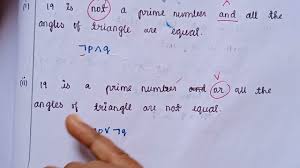 (i) 19 is not a prime number and all the
angles of triangle are equal.
¬p∧q
(ii) 19 is a prime number and or all the
angles of triangle are not equal.
p∨¬q